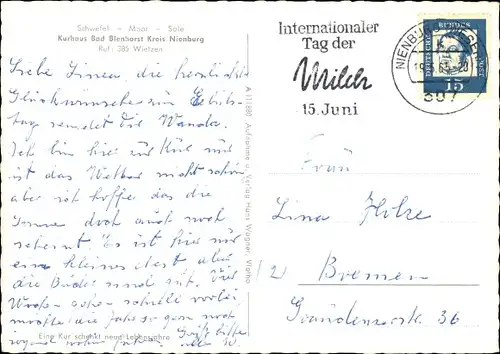 Schwefel – Moor – Sole
Kurhaus Bad Blenhorst Kreis Nienburg
Ruf: 385 Wietzen
Liebe Linea, die herzlichsten
Glückwünsche zum Geburts-
tag sendet die Wanda.
Ich bin hier zur Kur nur
ist das Wetter nicht schön
aber ich hoffe das die
Sonne doch auch noch
scheint. Es ist hier nur
ein kleines Nest aber
die Bäder sind gut. Vier
Wochen gehen schnell vorbei
möchte die Jahre gern noch
Eine Kur schenkt neue Lebensjahre
A 111.887 Aufnahme u. Verlag Hans Wagner, Vlotho
Internationaler
Tag der
Milch
15. Juni
NIENBURG WESER
307
DEUTSCHE BUNDESPOST
15
Frau
Lina Holze
2 Bremen
Graudenzerstr. 36